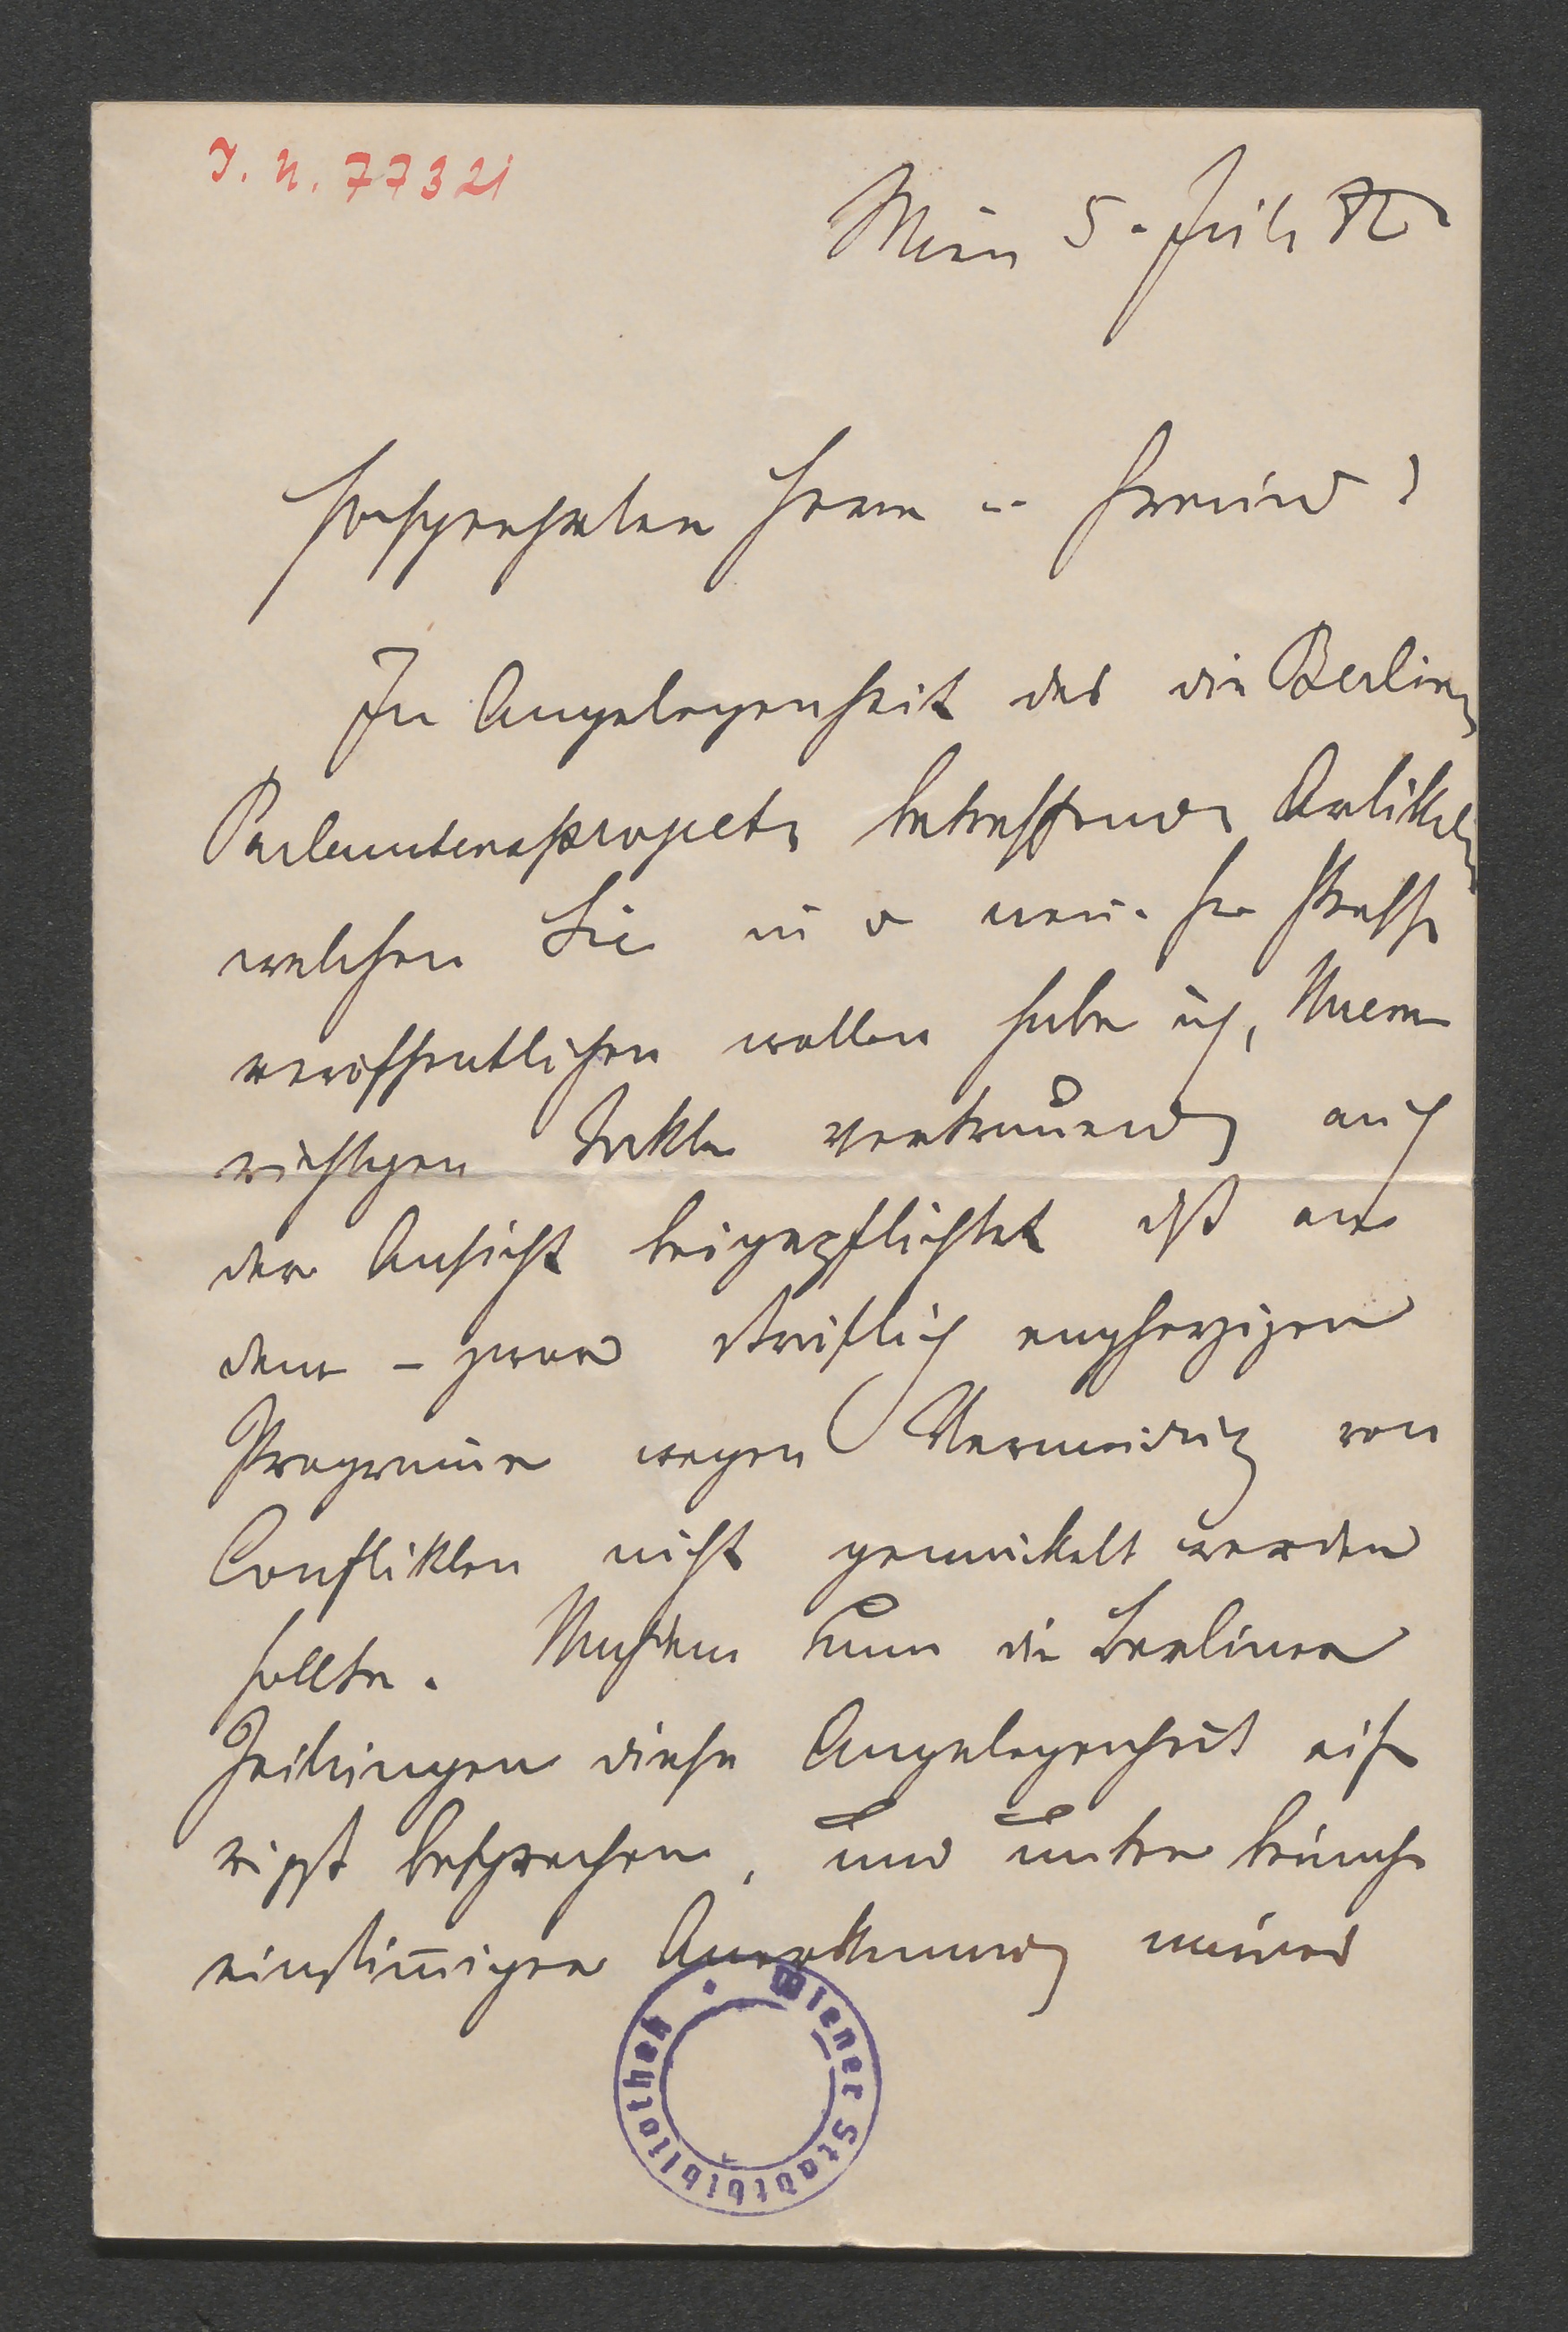 J. N. 77321
Wien 5. Juli 82
Hochgeehrter Herr u. Freund!
In Angelegenheit des die Berliner
Parlamentsprojecte betreffenden Artikels
welchen Sie in d neuen fr Presse
veröffentlichen wollen habe ich, Ihrem
richtigen Takte vertrauend, auch
der Ansicht beigepflichtet daß an
dem – zwar sträflich engherzigen
Programme wegen Vermeidung von
Conflikten nicht gemäkelt werden
sollte. Nachdem nun die Berliner
Zeitungen diese Angelegenheit eif
rigst besprechen, und unter beinahe
einstimmiger Anerkennung meines
Wiener Stadtbibliothek